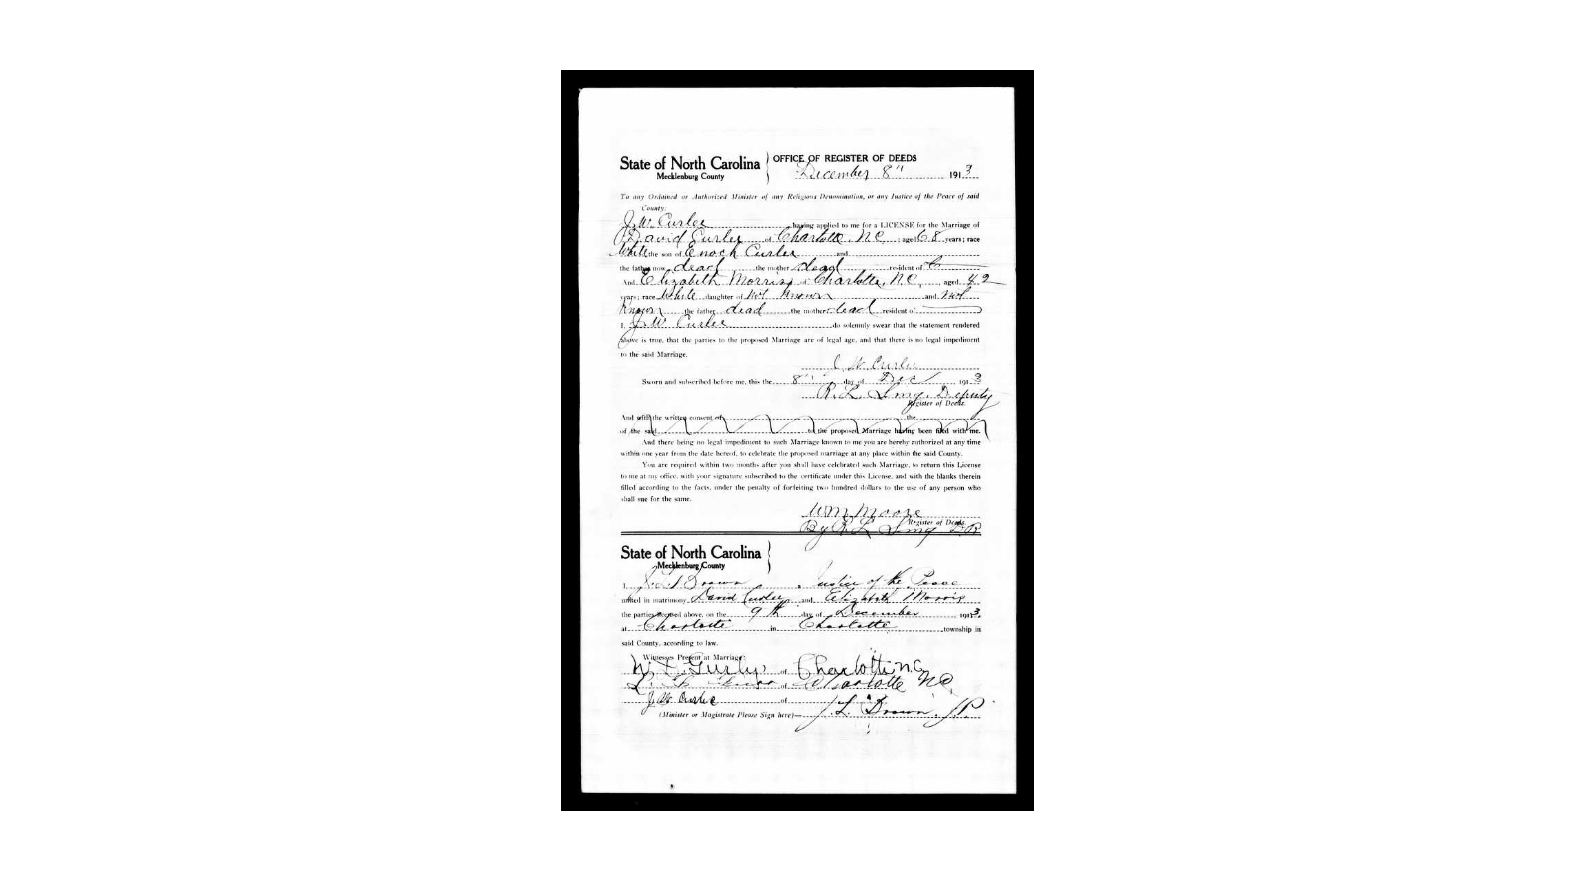 State of North Carolina
Mecklenburg County
OFFICE OF REGISTER OF DEEDS
December 8" 1913
To any Ordained or Authorized Minister of any Religious Denomination, or any Justice of the Peace of said
County:
J. W. Curlee having applied to me for a LICENSE for the Marriage of
David Curlee of Charlotte, N.C. aged 68 years; race
White the son of Enoch Curlee and
the father now dead the mother dead resident of
And Elizabeth Morris of Charlotte, N.C. aged 42
years; race White daughter of Not Known and Not
Known the father dead the mother dead resident of
I, J. W. Curlee do solemnly swear that the statement rendered
above is true, that the parties to the proposed Marriage are of legal age, and that there is no legal impediment
to the said Marriage.
J. W. Curlee
Sworn and subscribed before me, this the 8" day of Dec 1913
R. L. Deputy
Register of Deeds.
And with the written consent of the
of the said to the proposed Marriage having been filed with me.
And there being no legal impediment to such Marriage known to me you are hereby authorized at any time
within one year from the date hereof, to celebrate the proposed marriage at any place within the said County.
You are required within two months after you shall have celebrated such Marriage, to return this License
to me at my office, with your signature subscribed to the certificate under this License, and with the blanks therein
filled according to the facts, under the penalty of forfeiting two hundred dollars to the use of any person who
shall sue for the same.
Wm Moore
Register of Deeds.
By R. L. D.R.
State of North Carolina
Mecklenburg County
I, J. L. Brown a Justice of the Peace
united in matrimony David Curlee and Elizabeth Morris
the parties named above, on the 9th day of December 1913,
at Charlotte in Charlotte township in
said County, according to law.
Witnesses Present at Marriage:
of Charlotte N.C.
of Charlotte N.C.
J. W. Curlee of
(Minister or Magistrate Please Sign here)— J. L. Brown, J.P.